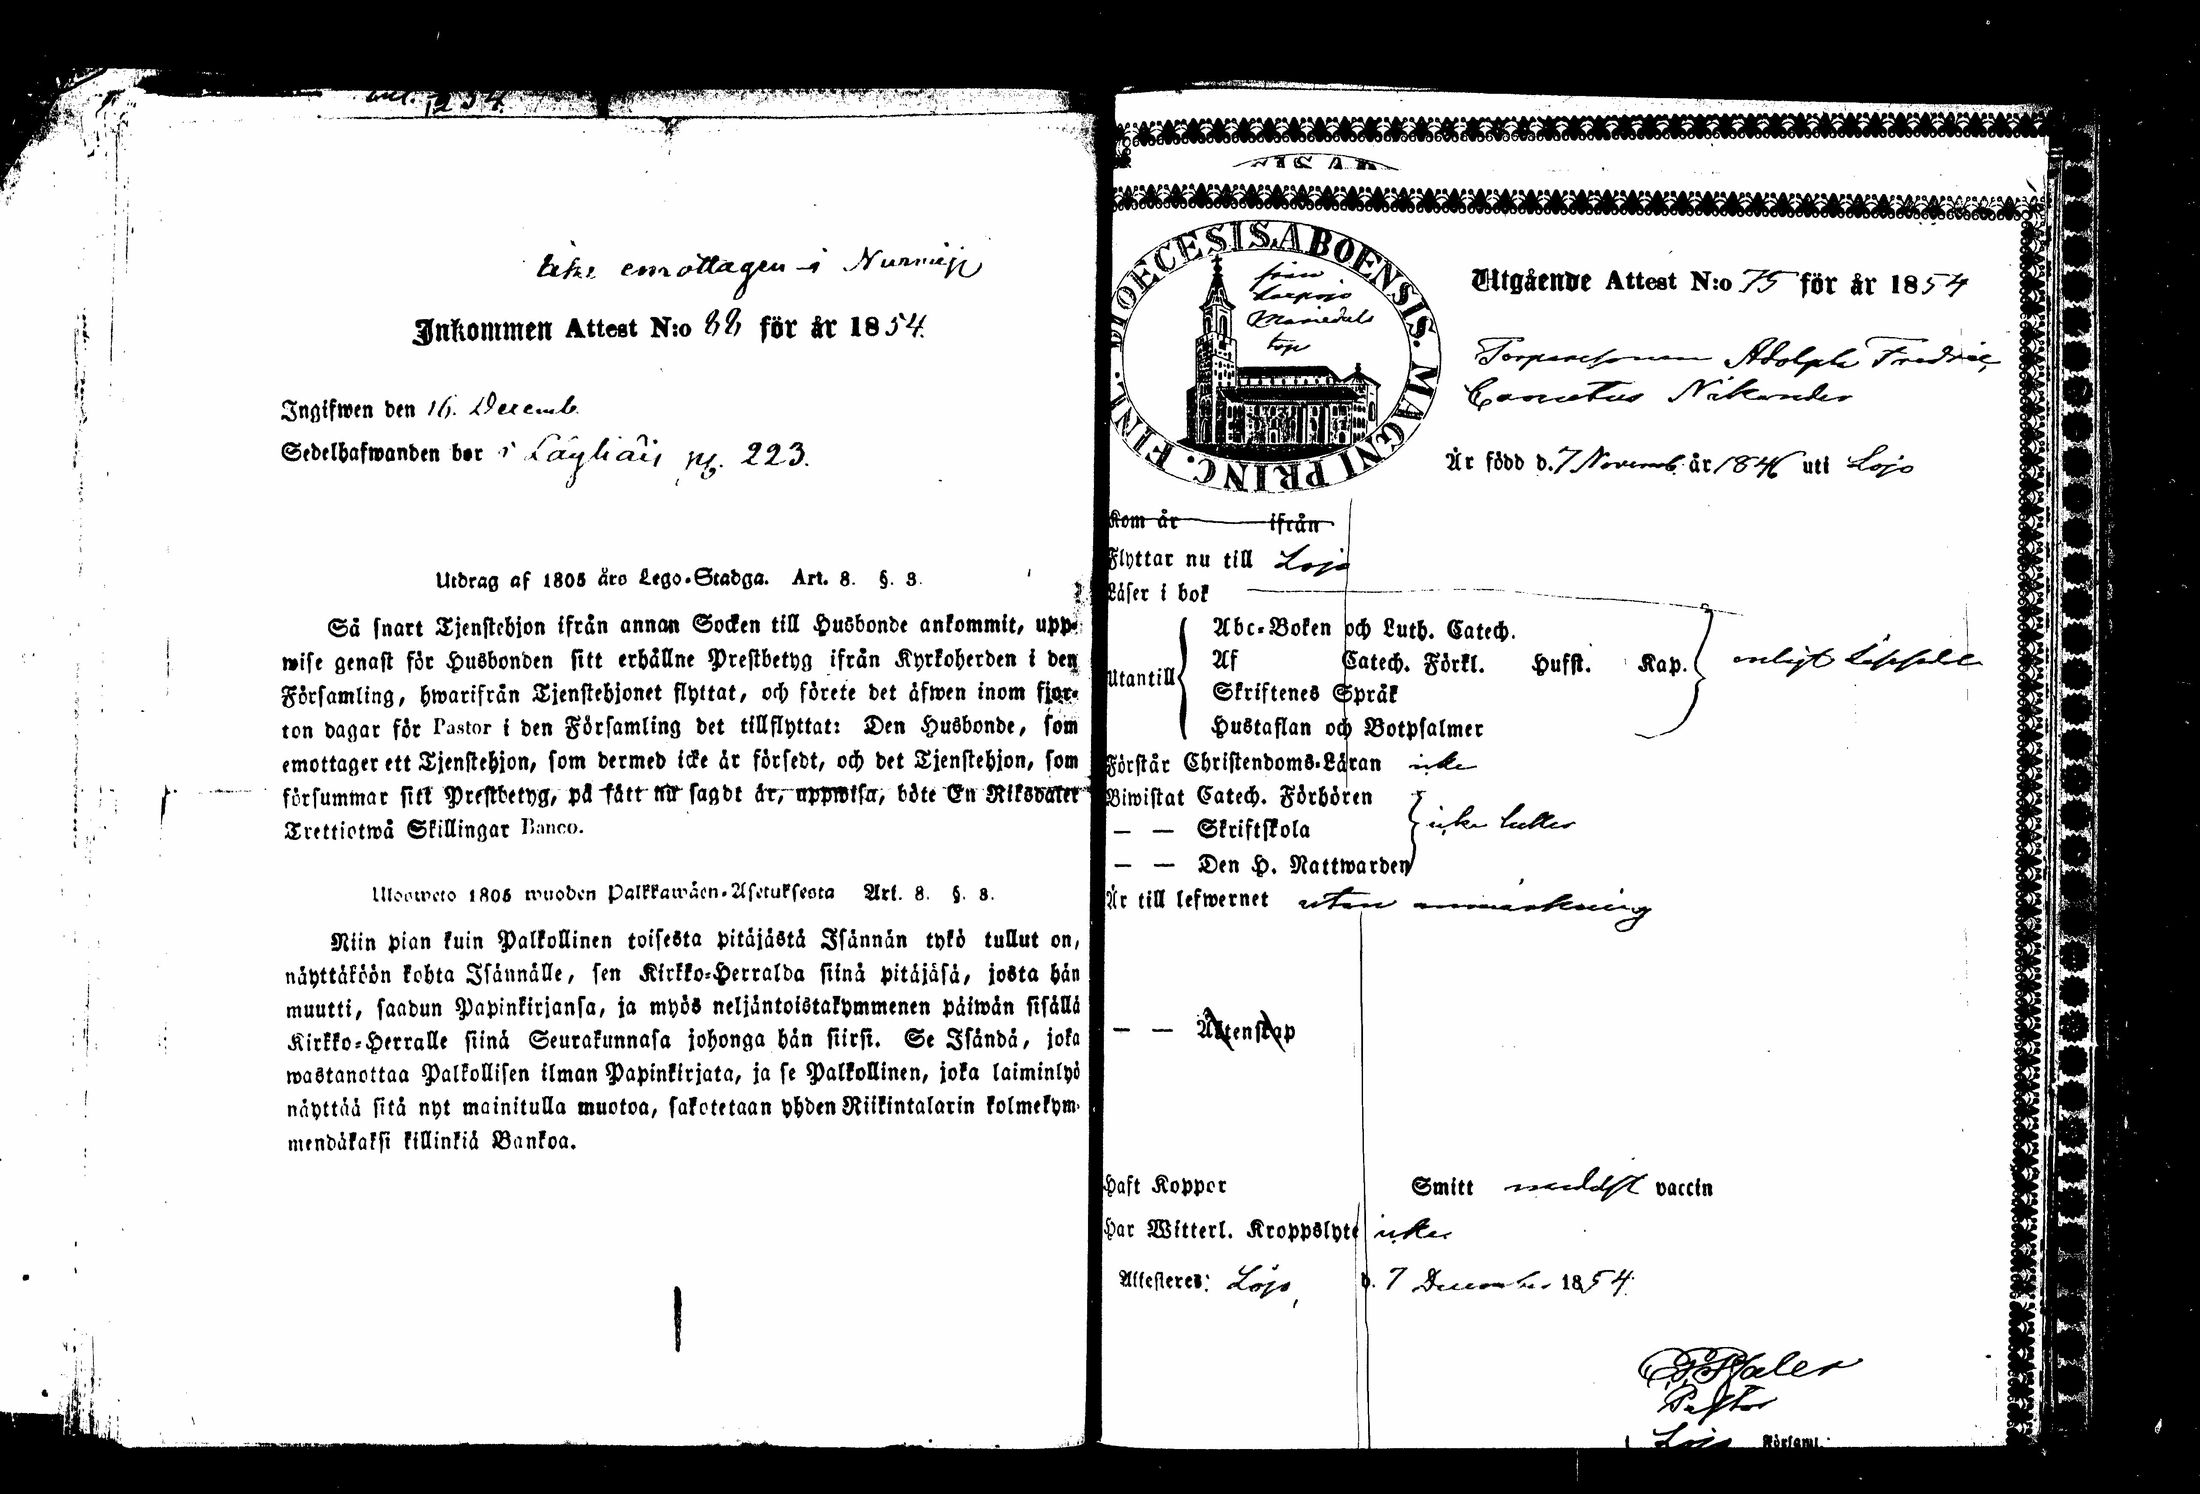 1854.
Icke emottagen i Nurmijerfvi
Inkommen Attest N:o 88 för år 1854.
Ingifwen den 16. Decemb.
Sedelhafwanden bor i pg. 223.
Utdrag af 1805 års Lego-Stadga. Art. 8. §. 3.
Så snart Tjenstehjon ifrån annan Socken till Husbonde ankommit, upp-
wise genast för Husbonden sitt erhållne Prestbetyg ifrån Kyrkoherden i den
Församling, hwarifrån Tjenstehjonet flyttat, och förete det äfwen inom fjor-
ton dagar för Pastor i den Församling det tillflyttat: Den Husbonde, som
emottager ett Tjenstehjon, som dermed icke är försedt, och det Tjenstehjon, som
försummar sitt Prestbetyg, på sätt nu sagdt är, uppwisa, böte En Riksdaler
Trettiotwå Skillingar Banco.
Ulosweto 1805 wuoden Palkkawäen-Asetuksesta Art. 8. §. 3.
Niin pian kuin Palkollinen toisesta pitäjästä Isännän tykö tullut on,
näyttäköön kohta Isännälle, sen Kirkko-Herralda siinä pitäjäsä, josta hän
muutti, saadun Papinkirjansa, ja myös neljäntoistakymmenen päiwän sisällä
Kirkko-Herralle siinä Seurakunnasa johonga hän siirsi. Se Isändä, joka
wastanottaa Palkollisen ilman Papinkirjata, ja se Palkollinen, joka laiminlyö
näyttää sitä nyt mainitulla muotoa, sakotetaan yhden Riikintalarin kolmekym-
mendäkaksi killinkiä Bankoa.
DIOECESIS ABOENSIS. MAGNI PRINC. FINL.
från
torp
Utgående Attest N:o 75 för år 1854
Torparesonen Adolph Fredric
Nikander
Är född d. 7 Novemb. år 1846 uti Lojo
Kom år ifrån
Flyttar nu till Lojo
Läser i bok
Utantill
Abc-Boken och Luth. Catech.
Af Catech. Förkl. Husst. Kap.
enligt
Skriftenes Språk
Hustaflan och Botpsalmer
Förstår Christendoms-Läran icke
Biwistat Catech. Förhören
— — Skriftskola
icke heller
— — Den H. Nattwarden
Är till lefwernet utan anmärkning
— — Äktenskap
Haft Koppor Smitt medelst vaccin
Har Witterl. Kroppslyte icke
Attesteres: Lojo, d. 7 December 1854.
Pastor
i Lojo Församl.